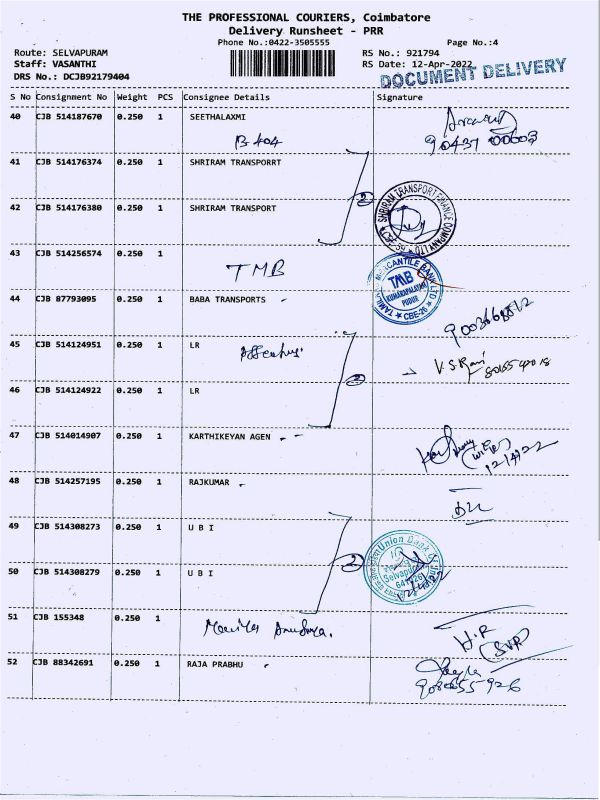 THE PROFESSIONAL COURIERS, Coimbatore
Delivery Runsheet - PRR
Phone No.:0422-3505555 Page No.:4
Route: SELVAPURAM RS No.: 921794
Staff: VASANTHI RS Date: 12-Apr-2022
DRS No.: DCJB92179404 DOCUMENT DELIVERY
S No Consignment No Weight PCS Consignee Details Signature
40 CJB 514187670 0.250 1 SEETHALAXMI
B 404 90437 00603
41 CJB 514176374 0.250 1 SHRIRAM TRANSPORRT
2
42 CJB 514176380 0.250 1 SHRIRAM TRANSPORT
SHRIRAM TRANSPORT FINANCE COMPANY LTD
43 CJB 514256574 0.250 1
TMB
MERCANTILE BANK LTD
TMB
KUMARAPALAYAM
PUDUR
CBE-26
44 CJB 87793095 0.250 1 BABA TRANSPORTS
45 CJB 514124951 0.250 1 LR
2 V.S.Rani
46 CJB 514124922 0.250 1 LR
47 CJB 514014907 0.250 1 KARTHIKEYAN AGEN
(wife)
12/4/22
48 CJB 514257195 0.250 1 RAJKUMAR
49 CJB 514308273 0.250 1 U B I
2
Union Bank of India
Selvapuram
50 CJB 514308279 0.250 1 U B I
51 CJB 155348 0.250 1
H.R
(SVR)
52 CJB 88342691 0.250 1 RAJA PRABHU